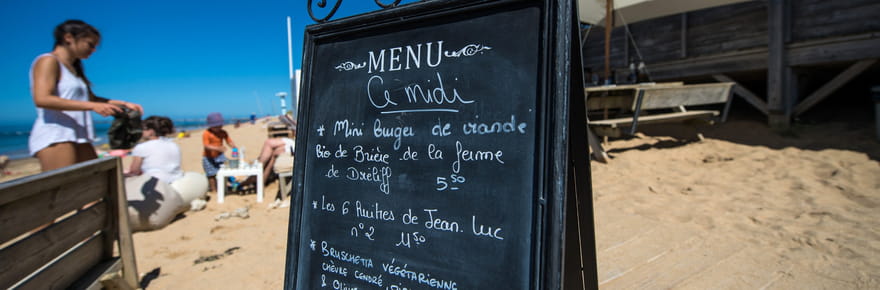 MENU
Ce midi
* Mini burger de viande
bio de Brière de la ferme
de Dréliff 5,50
* Les 6 Huitres de Jean. Luc
n°2 11,50
* BRUSCHETTA VÉGÉTARIENNE
CHÈVRE CENDRÉ,
& Olive